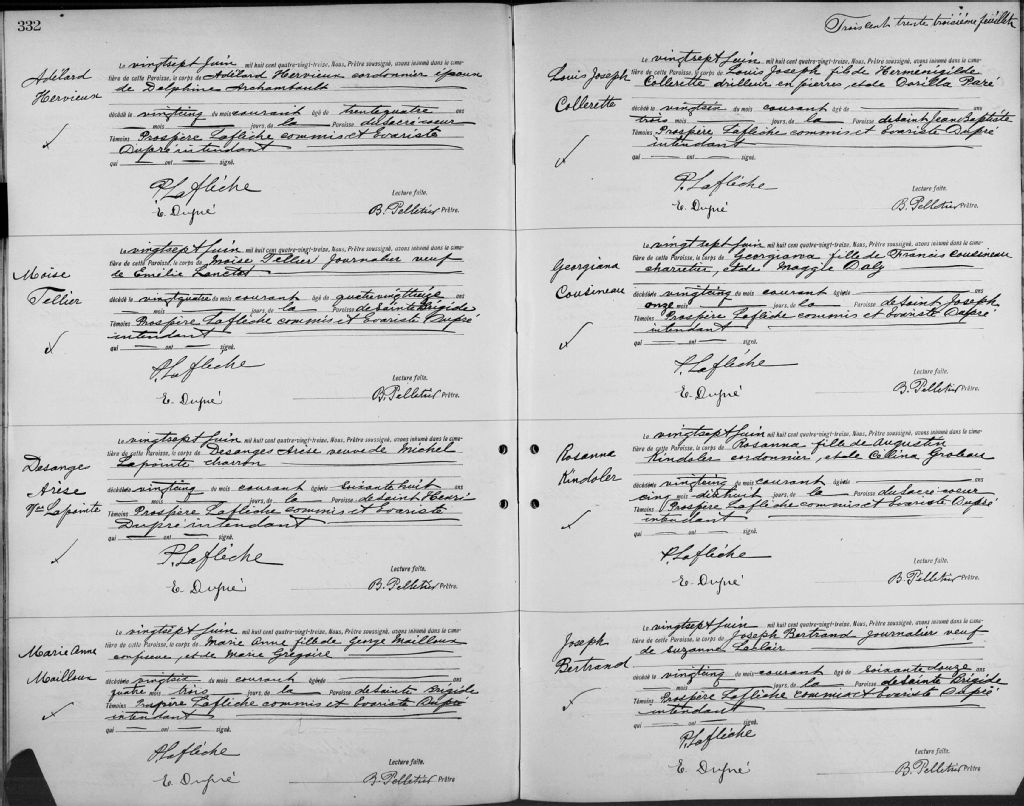 332
Adélard
Hervieux
Le vingtsept Juin mil huit cent quatre-vingt-treize, Nous, Prêtre soussigné, avons inhumé dans le cime-
tière de cette Paroisse, le corps de Adélard Hervieux cordonnier époux
de Delphine Archambault
décédé le vingtcinq du mois courant âgé de trentequatre ans
mois jours, de la Paroisse du Sacré coeur
Témoins Prospère Laflèche commis et Evariste
Dupré intendant
qui ont signé.
P. Laflèche
Lecture faite.
E. Dupré
B. Pelletier Prêtre.
Moise
Tellier
Le vingtsept Juin mil huit cent quatre-vingt-treize, Nous, Prêtre soussigné, avons inhumé dans le cime-
tière de cette Paroisse, le corps de Moise Tellier Journalier veuf
de Emilie Lanctot
décédé le vingtquatre du mois courant âgé de quatrevingttreize ans
mois jours, de la Paroisse de Sainte Brigide
Témoins Prospère Laflèche commis et Evariste Dupré
intendant
qui ont signé.
P. Laflèche
Lecture faite.
E. Dupré
B. Pelletier Prêtre.
Desanges
Arèse
Lapointe
Le vingtsept Juin mil huit cent quatre-vingt-treize, Nous, Prêtre soussigné, avons inhumé dans le cime-
tière de cette Paroisse, le corps de Desanges Arèse veuve de Michel
Lapointe charron
décédée le vingtcinq du mois courant âgée de soixantehuit ans
mois jours, de la Paroisse de Saint Henri
Témoins Prospère Laflèche commis et Evariste
Dupré intendant
qui ont signé.
P. Laflèche
Lecture faite.
E. Dupré
B. Pelletier Prêtre.
Marie Anne
Mailloux
Le vingtsept Juin mil huit cent quatre-vingt-treize, Nous, Prêtre soussigné, avons inhumé dans le cime-
tière de cette Paroisse, le corps de Marie Anne fille de George Mailloux
confiseur, et de Marie Grégoire
décédée le vingtsix du mois courant âgée de ans
quatre mois trois jours, de la Paroisse de Sainte Brigide
Témoins Prospère Laflèche commis et Evariste Dupré
intendant
qui ont signé.
P. Laflèche
Lecture faite.
E. Dupré
B. Pelletier Prêtre
Trois cent trente troisième feuillet
Louis Joseph
Collerette
Le vingtsept Juin mil huit cent quatre-vingt-treize, Nous, Prêtre soussigné, avons inhumé dans le cime-
tière de cette Paroisse, le corps de Louis Joseph fils de Herménégilde
Collerette drilleur en pierres, et de Dorilla Paré
décédé le vingtsix du mois courant âgé de ans
trois mois jours, de la Paroisse de Saint Jean Baptiste
Témoins Prospère Laflèche commis et Evariste Dupré
intendant
qui ont signé.
P. Laflèche
Lecture faite.
E. Dupré
B. Pelletier Prêtre.
Georgiana
Cousineau
Le vingtsept Juin mil huit cent quatre-vingt-treize, Nous, Prêtre soussigné, avons inhumé dans le cime-
tière de cette Paroisse, le corps de Georgiana fille de Francis Cousineau
charretier, et de Maggie Daly
décédée le vingtcinq du mois courant âgée de ans
onze mois jours, de la Paroisse de Saint Joseph
Témoins Prospère Laflèche commis et Evariste Dupré
intendant
qui ont signé.
P. Laflèche
Lecture faite.
E. Dupré
B. Pelletier Prêtre.
Rosanna
Kindoler
Le vingtsept Juin mil huit cent quatre-vingt-treize, Nous, Prêtre soussigné, avons inhumé dans le cime-
tière de cette Paroisse, le corps de Rosanna fille de Augustin
Kindoler cordonnier, et de Célina Grobau
décédée le vingtcinq du mois courant âgée de ans
cinq mois dixhuit jours, de la Paroisse du Sacré coeur
Témoins Prospère Laflèche commis et Evariste Dupré
intendant
qui ont signé.
P. Laflèche
Lecture faite.
E. Dupré
B. Pelletier Prêtre.
Joseph
Bertrand
Le vingtsept Juin mil huit cent quatre-vingt-treize, Nous, Prêtre soussigné, avons inhumé dans le cime-
tière de cette Paroisse, le corps de Joseph Bertrand Journalier veuf
de Suzanna Leclair
décédé le vingtcinq du mois courant âgé de soixantedouze ans
mois jours, de la Paroisse de Sainte Brigide
Témoins Prospère Laflèche commis et Evariste Dupré
intendant
qui ont signé.
P. Laflèche
Lecture faite.
E. Dupré
B. Pelletier Prêtre.